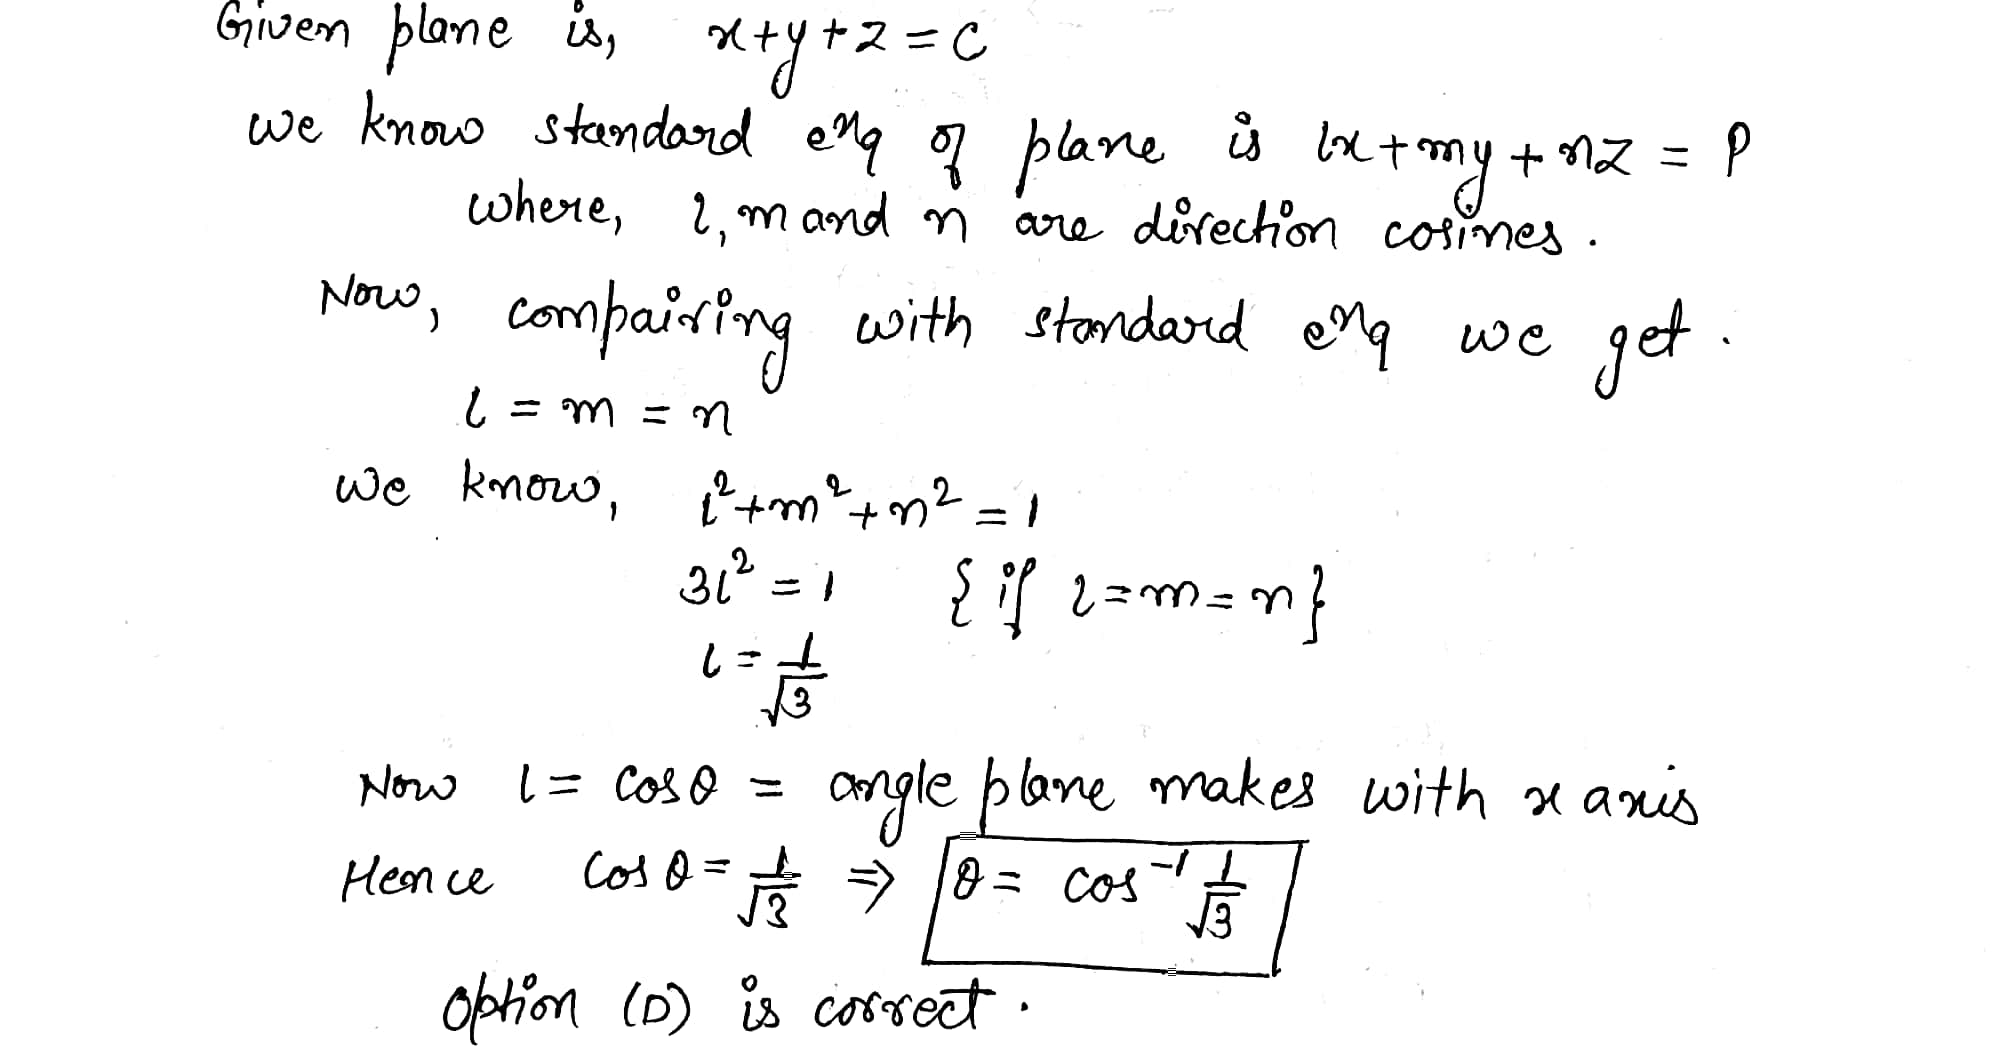 Given plane is, x+y+z=c
we know standard eqn of plane is lx+my+nz = P
where, l, m and n are direction cosines.
Now, compairing with standard eqn we get.
l = m = n
We know, l²+m²+n²=1
3l²=1 {if l=m=n}
l=1/√3
Now l= cosθ = angle plane makes with x axis
Hence cosθ=1/√3 ⇒ θ= cos⁻¹ 1/√3
Option (D) is correct.